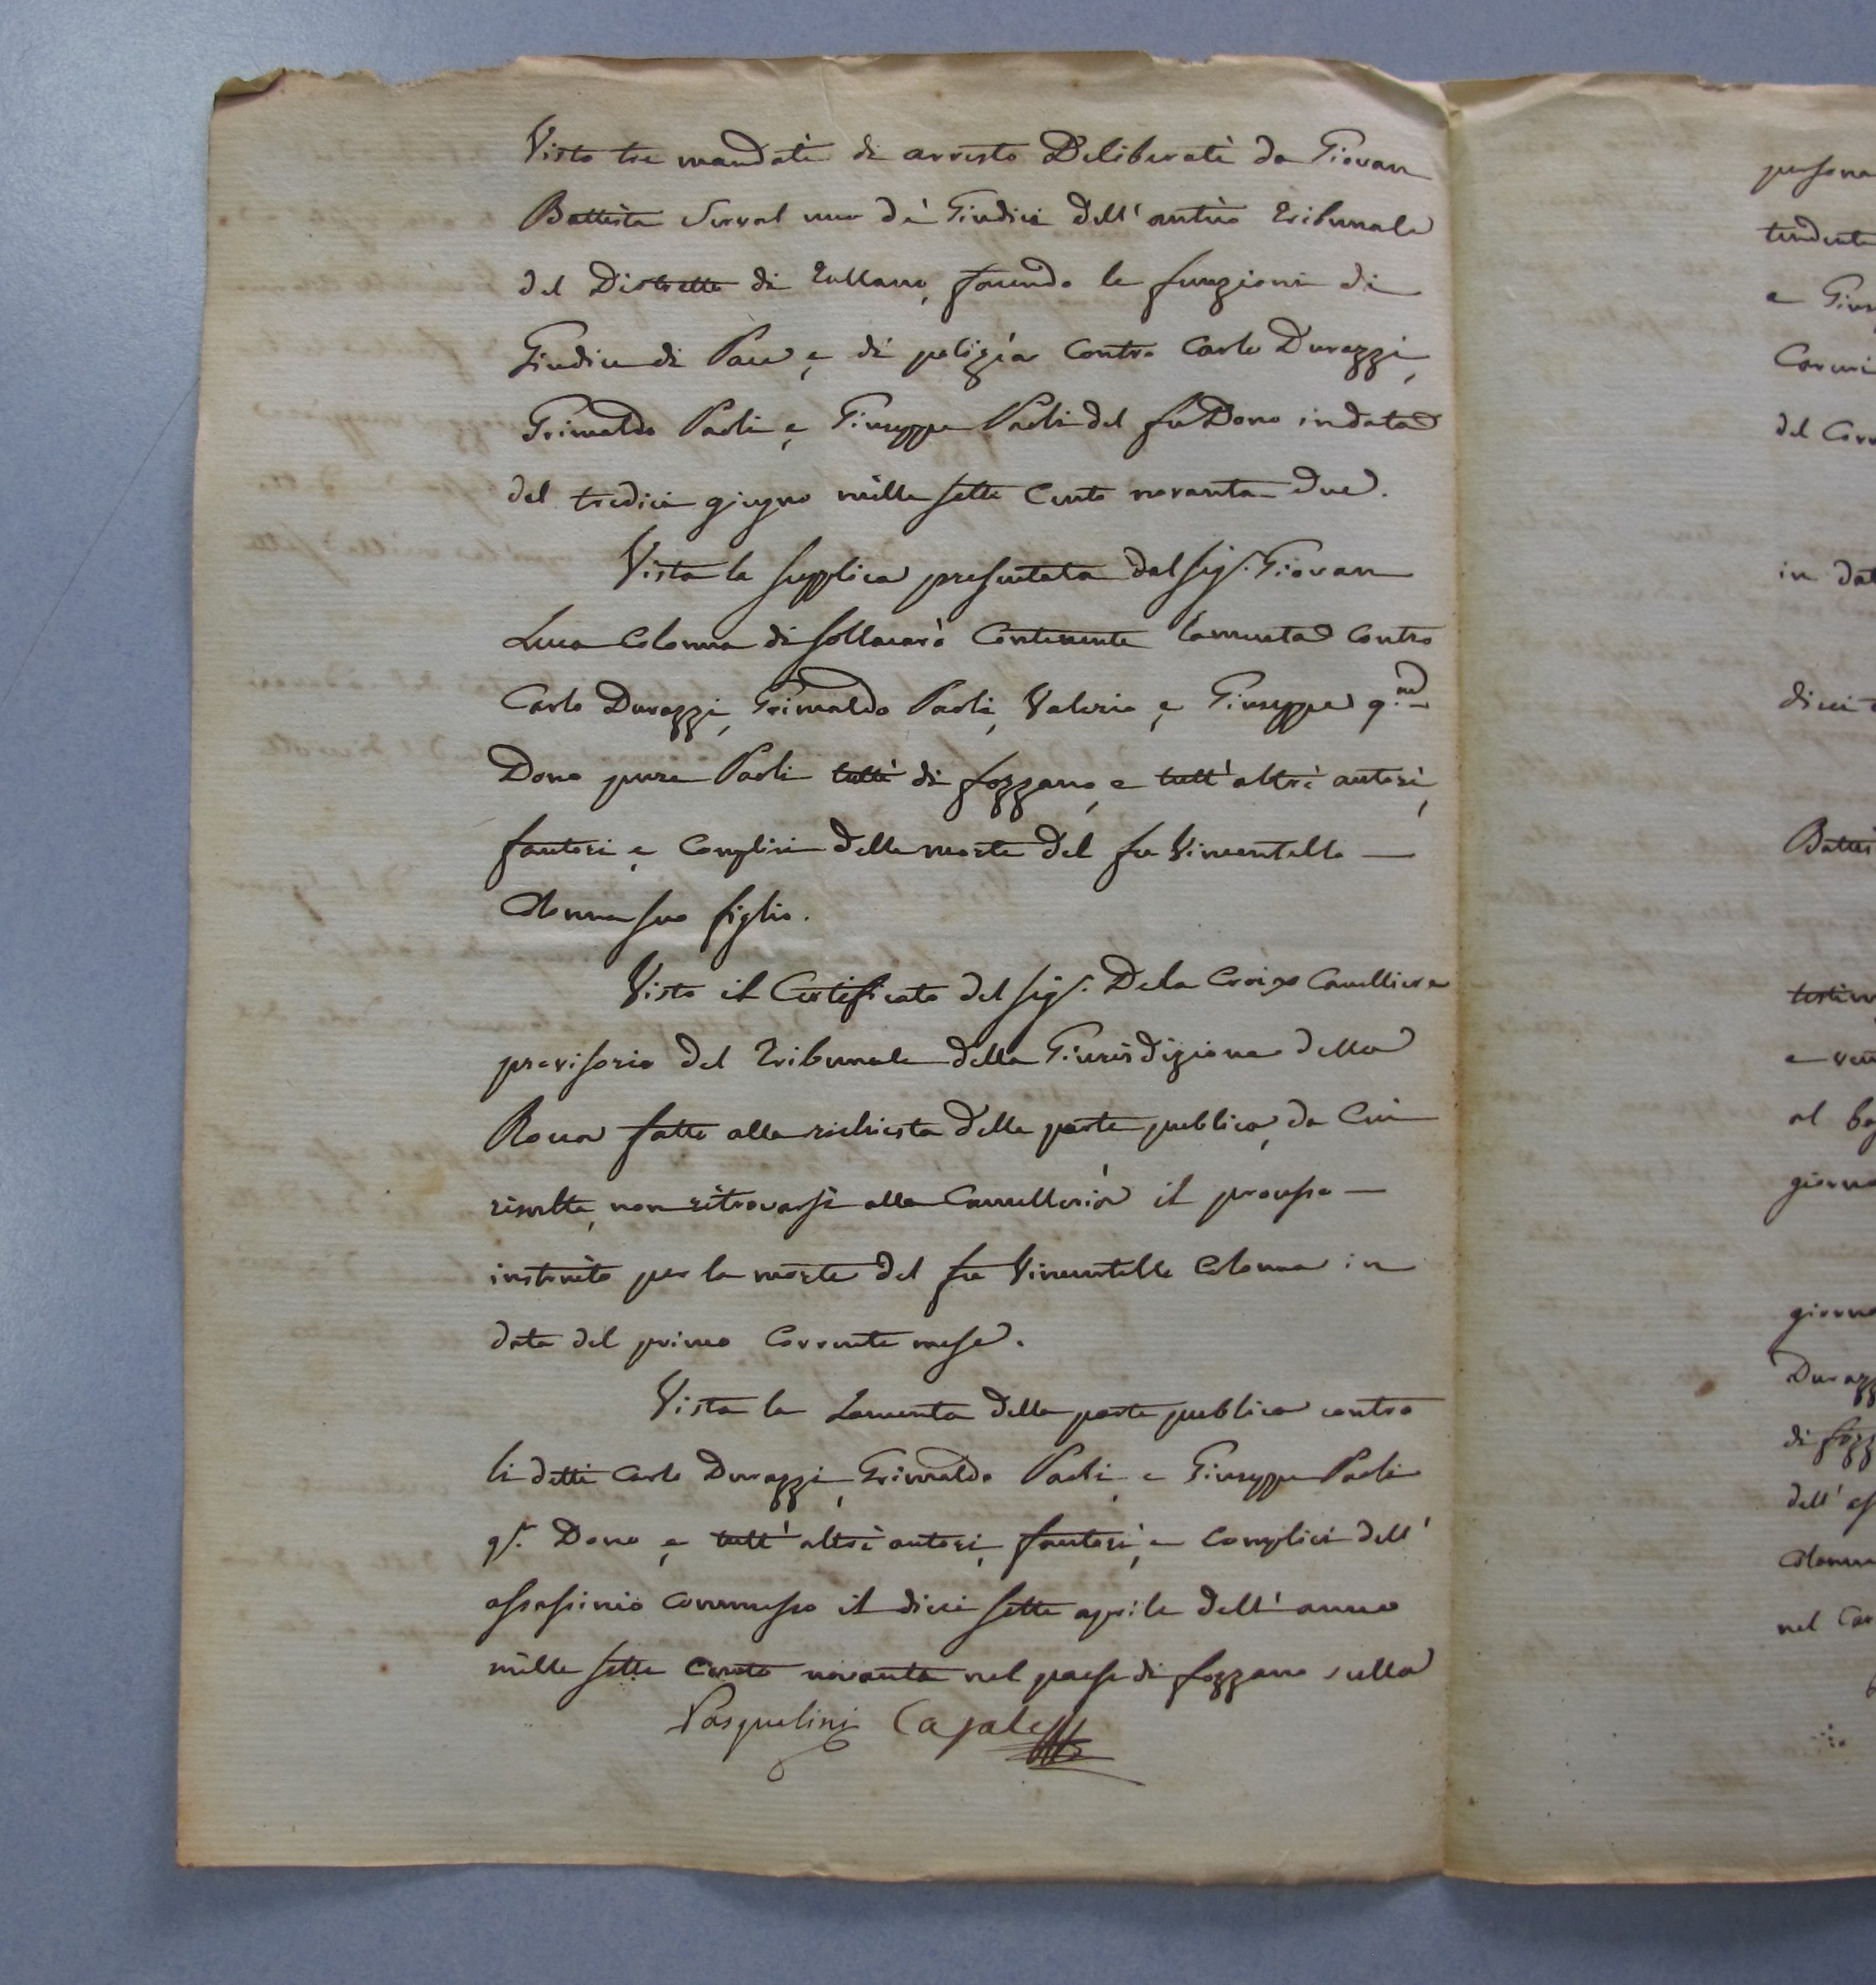 Visto tre mandati di arresto Deliberati da Giovan
Battista Serval uno de' Giudici dell' antico Tribunale
del Distretto di Tallano, facendo le funzioni di
Giudice di Pace, e di polizia contro Carlo Durazzi,
Grimaldo Paoli, e Giuseppe Paoli del fu Dono in data
del tredici giugno mille sette Cento novanta due.
Vista la supplica presentata dal sig.r Giovan
Luca Colonna di sollacarò Contenente lamenta contro
Carlo Durazzi, Grimaldo Paoli, Valerio, e Giuseppe q.m
Dono pure Paoli tutti di fozzano, e tutt' altri autori,
fautori, e Complici della morte del fu Vincentello
Colonna suo figlio.
Visto il Certificato del sig.r Dela Croix Cancelliere
provisorio del Tribunale della Giurisdizione della
Rocca fatto alla richiesta della parte publica, da Cui
risulta, non ritrovarsi alla Cancelleria il processo
instruito per la morte del fu Vincentello Colonna in
data del primo Corrente mese.
Vista la Lamenta della parte publica contro
li detti Carlo Durazzi, Grimaldo Paoli, e Giuseppe Paoli
q.m Dono, e tutt' altri autori, fautori, e Complici dell'
assassinio commesso il dieci sette aprile dell' anno
mille sette Cento novanta nel paese di fozzano sulla
Pasqualini Casale
persona
e
del
in dat
dieci
e
al
giorno
giorno
Durazz
di fozz
dell' as
Colonna
nel